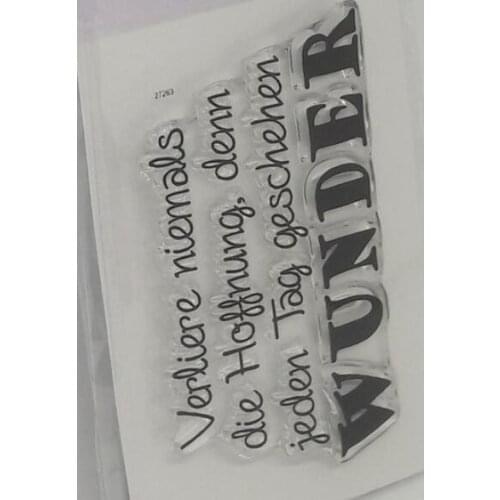 27263
Verliere niemals
die Hoffnung, denn
jeden Tag geschehen
WUNDER